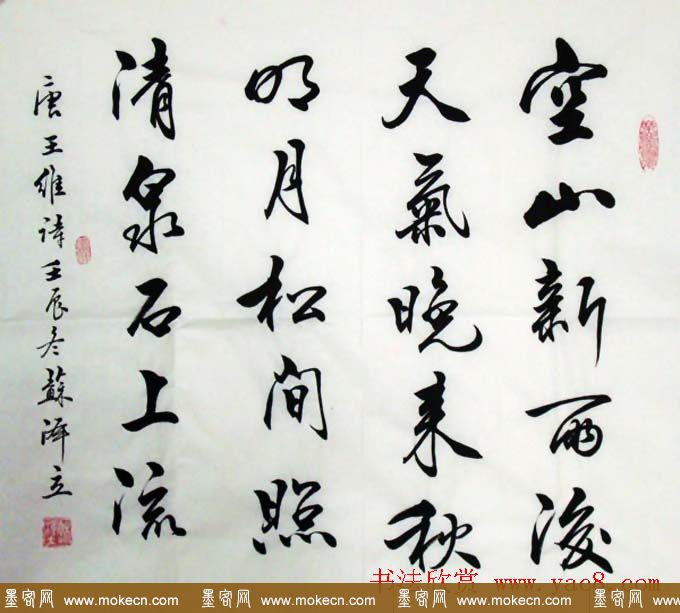 空山新雨後
天氣晚来秋
明月松間照
清泉石上流
唐王維詩壬辰冬蘇澤立
书法欣赏 www.yac8.com
墨客网 www.mokecn.com 墨客网 www.mokecn.com 墨客网 www.mokecn.com